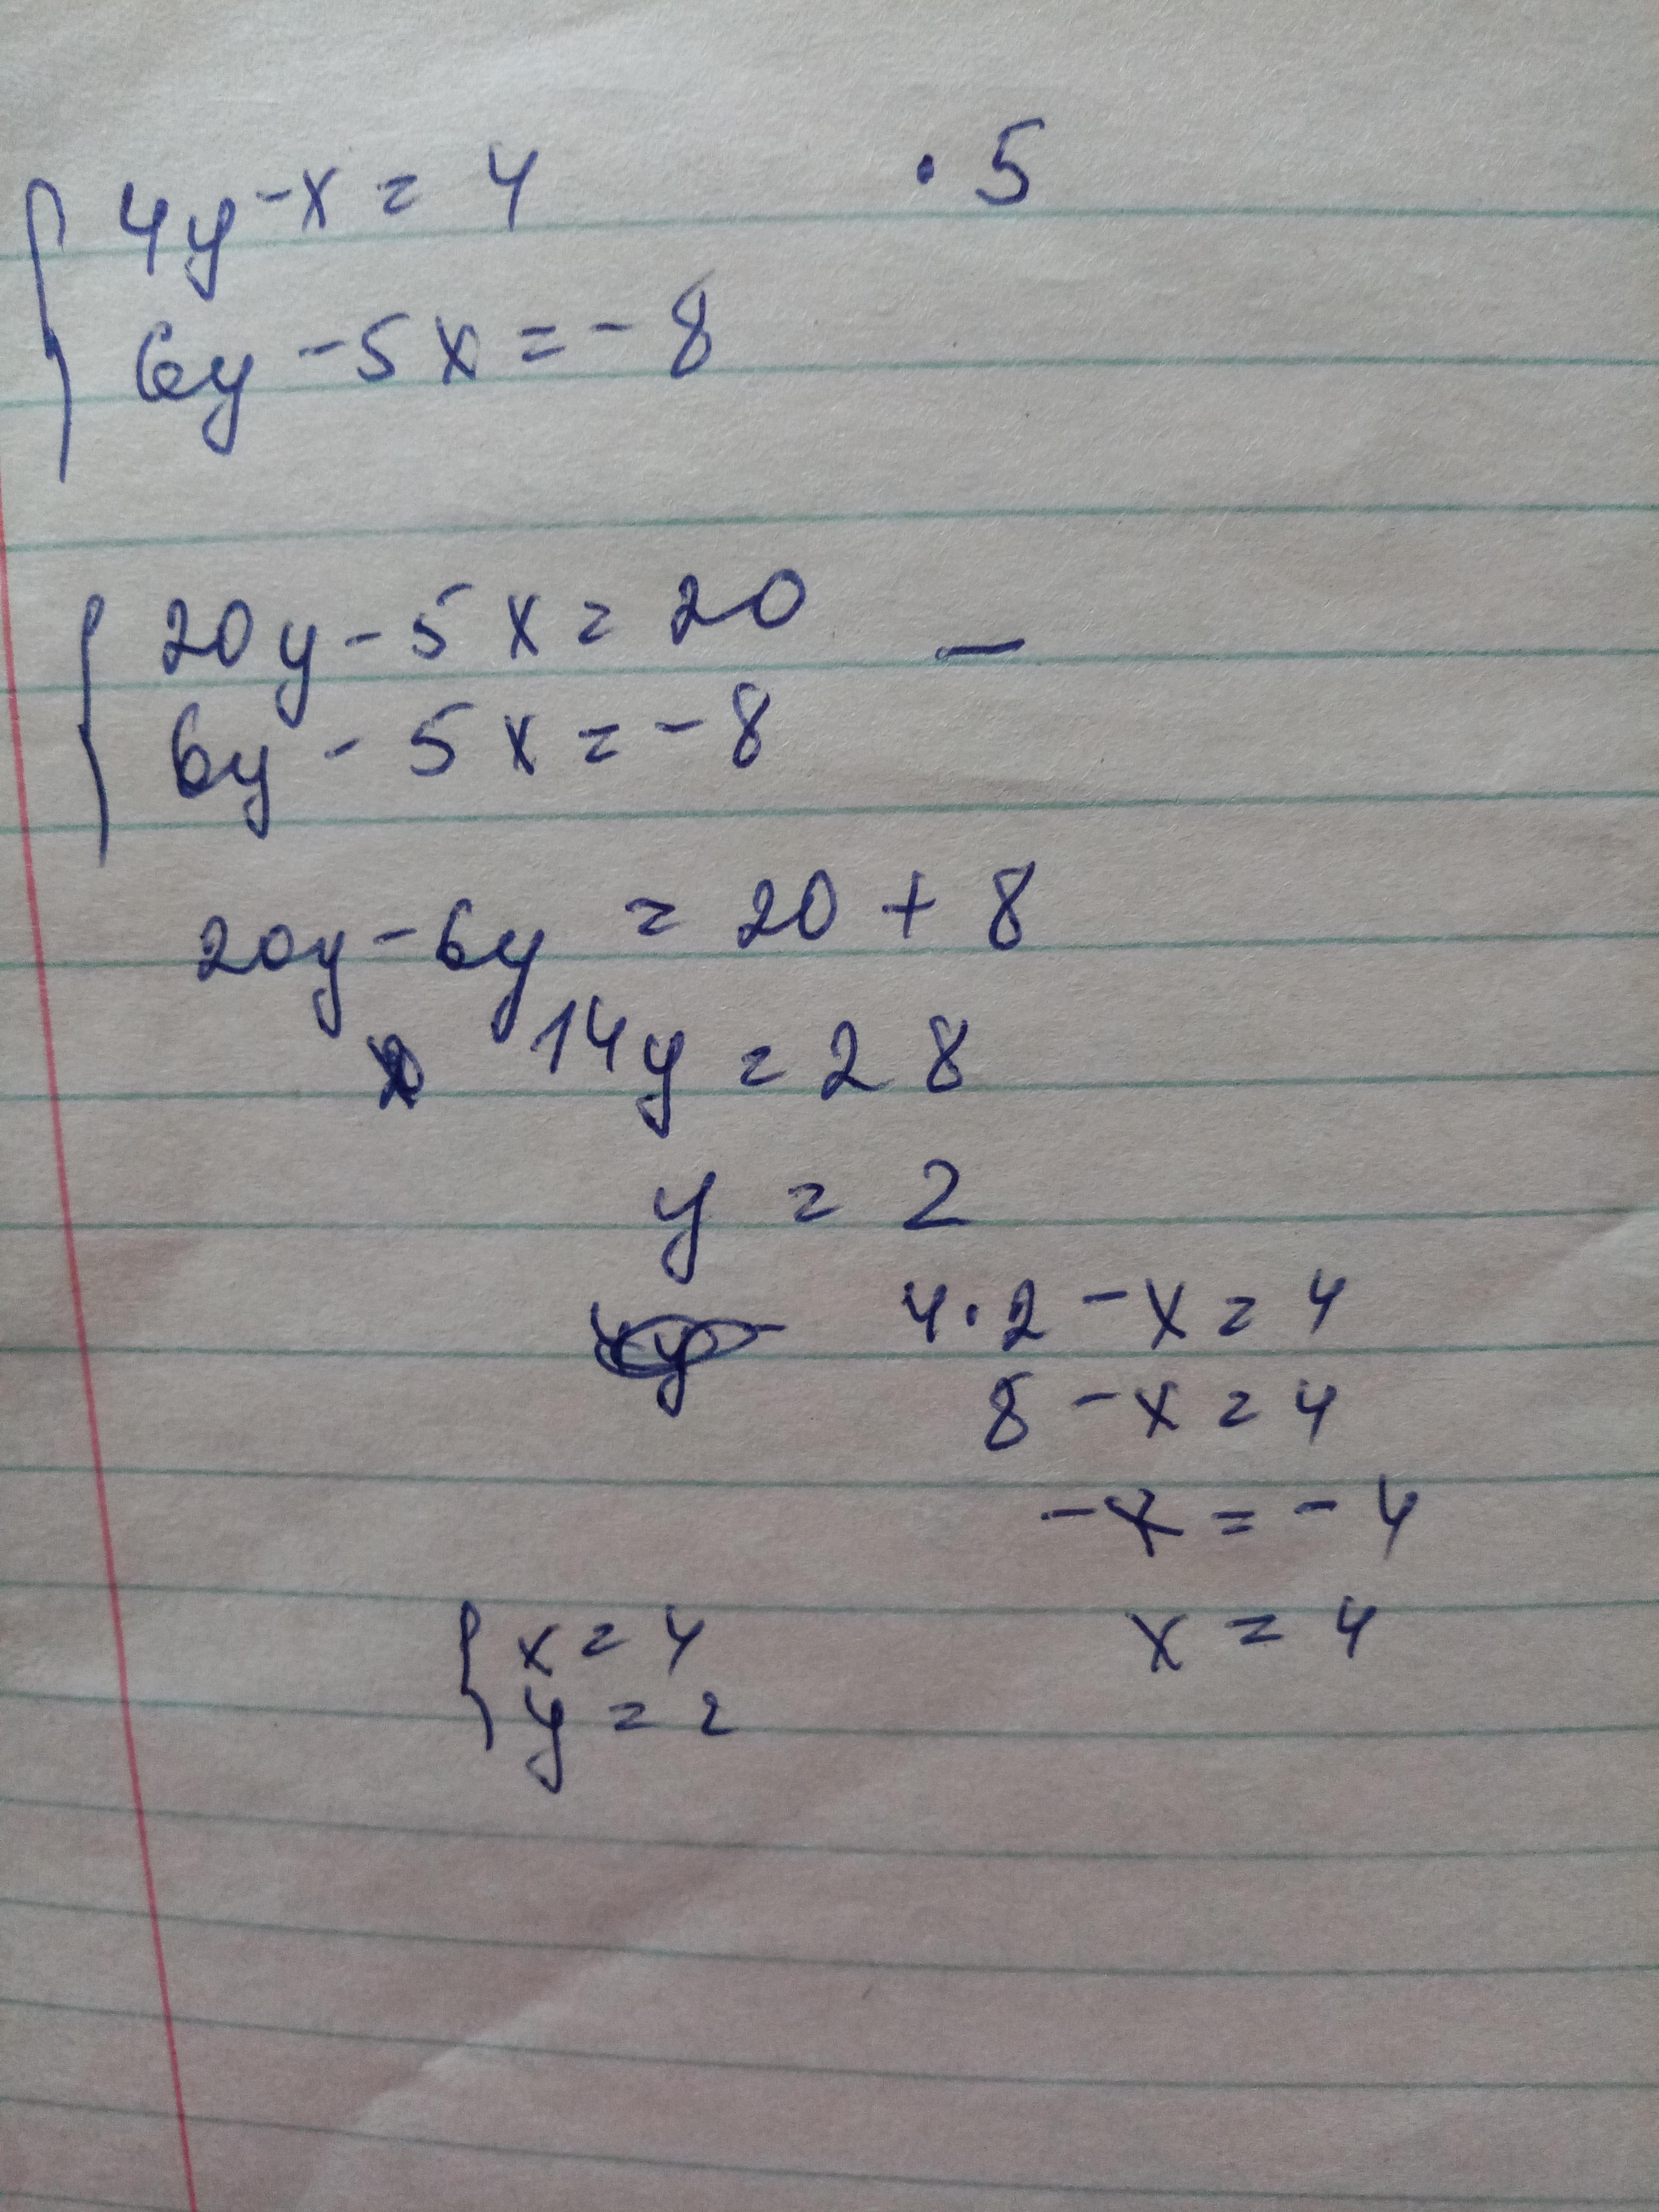 4y - x = 4 · 5
6y - 5x = - 8
20y - 5x = 20 —
6y - 5x = - 8
20y - 6y = 20 + 8
14y = 28
y = 2
4 · 2 - x = 4
8 - x = 4
- x = - 4
x = 4
x = 4
y = 2